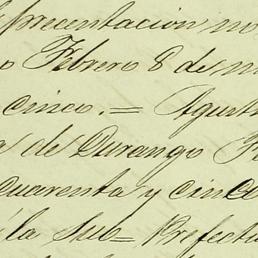 presentacion
o Febrero 8 de m
cinco.= Agust
a de Durango
cuarenta y cinco
á la Sub= Prefectu